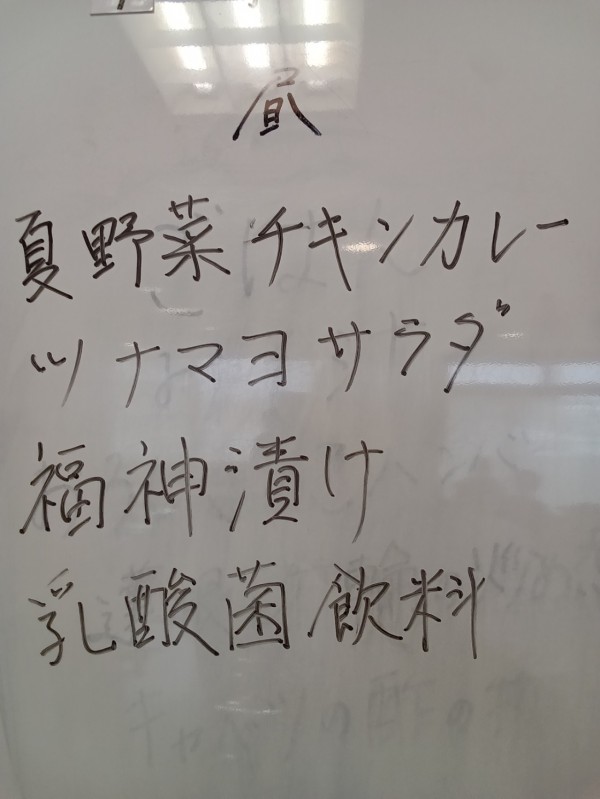 昼
夏野菜チキンカレー
ツナマヨサラダ
福神漬け
乳酸菌飲料